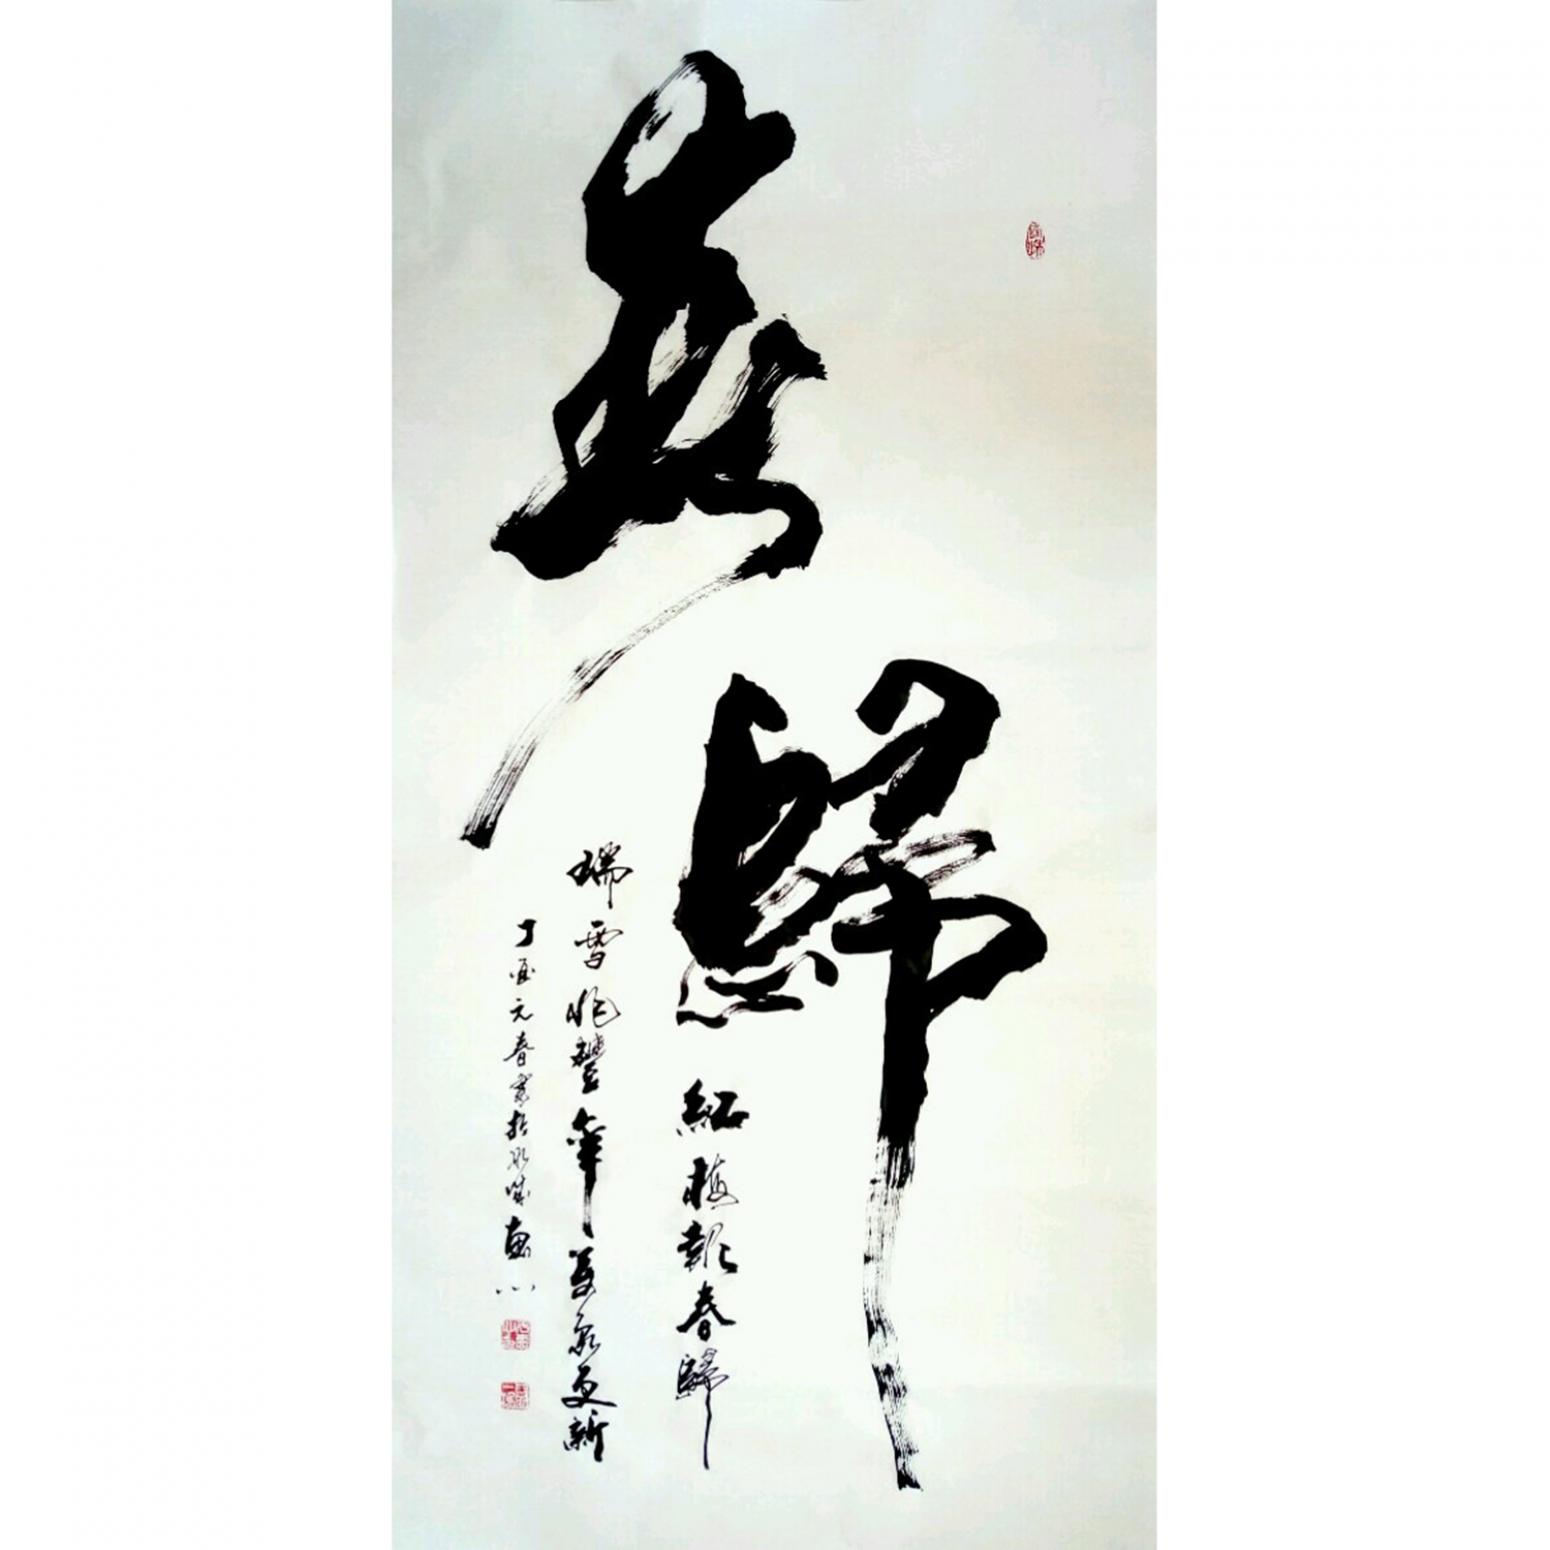 春歸
紅梅報春歸
瑞雪兆豐年萬象更新
丁酉元春書於